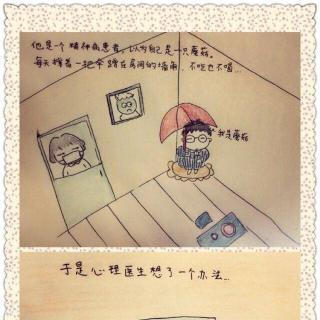 他是个精神病患者，以为自己是一只蘑菇。
每天撑着一把伞蹲在房间的墙角，不吃也不喝...
我是蘑菇
于是心理医生想了一个办法...